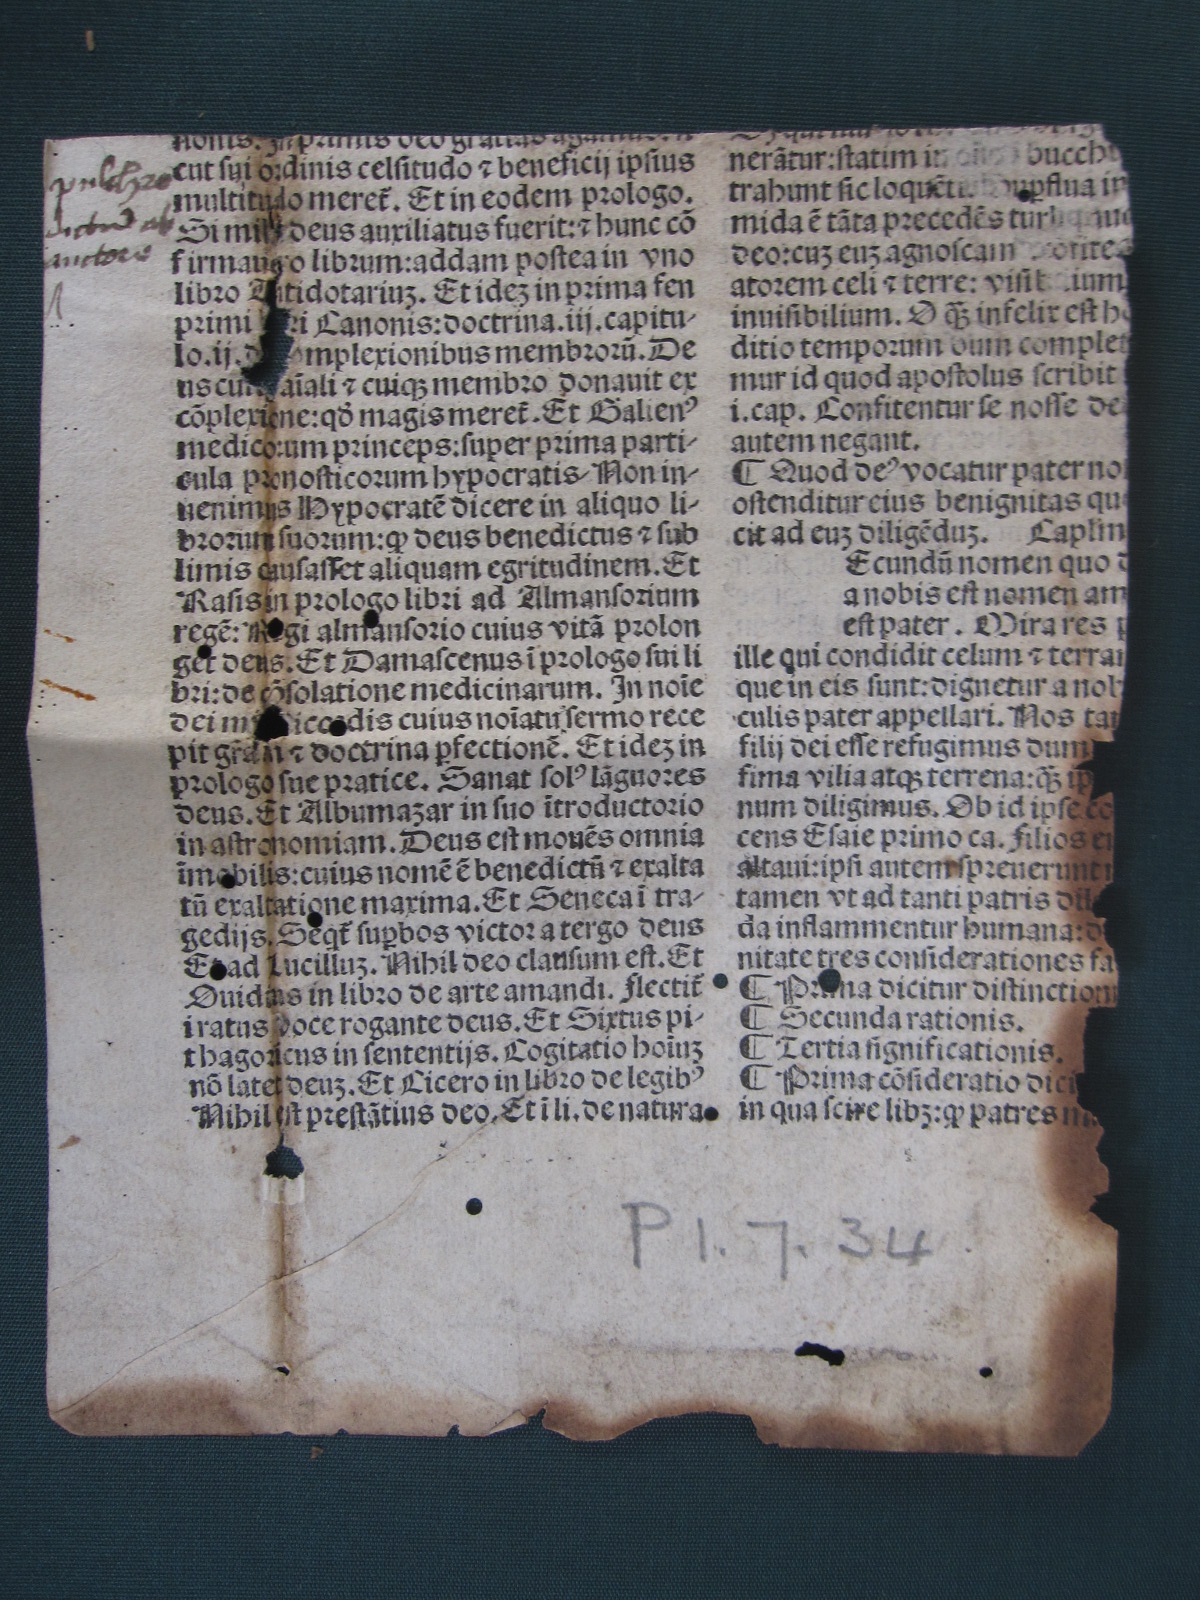 pulchre
dictum ab
auctore
nonis. In primis deo gratias agamus:
cut sui ordinis celsitudo ⁊ beneficij ipsius
multitudo mereť. Et in eodem prologo.
Si mihi deus auxiliatus fuerit:⁊ hunc cō
firmauero librum:addam postea in vno
libro Antidotariuꝫ. Et ideꝫ in prima fen
primi libri Canonis:doctrina.iij.capitu-
lo.ij.de complexionibus membrorū. De
us cui aīali ⁊ cuiqꝫ membro donauit ex
cōplexione:qđ magis mereť. Et Galienꝰ
medicorum princeps:super prima parti-
cula pronosticorum hypocratis. Non in-
uenimus Hypocratē dicere in aliquo li-
brorum suorum:ꝙ deus benedictus ⁊ sub
limis causasset aliquam egritudinem. Et
Rasis in prologo libri ad Almansorium
regē: Regi almansorio cuius vitā prolon
get deus. Et Damascenus ī prologo sui li
bri:de cōsolatione medicinarum. In noīe
dei misericordis cuius noīatu sermo rece
pit grām ⁊ doctrina ꝑfectionē. Et ideꝫ in
prologo sue pratice. Sanat solꝰ lāguores
deus. Et Albumazar in suo ītroductorio
in astronomiam. Deus est mouēs omnia
īmobilis:cuius nomē ē benedictū ⁊ exalta
tū exaltatione maxima. Et Seneca ī tra-
gedijs. Seqť suꝑbos victor a tergo deus
Et ad Lucilluꝫ. Nihil deo clausum est. Et
Ouidius in libro de arte amandi. Flectiť
iratus voce rogante deus. Et Sixtus pi-
thagoricus in sententijs. Cogitatio hoīuꝫ
nō latet deuꝫ. Et Cicero in libro de legibꝰ
Nihil est prestātius deo. Et ī li. de natura
nerātur:statim in bucch
trahunt sic loquēt suꝑflua
mida ē tāta precedēs tur
deo:cuꝫ euꝫ agnoscam
atorem celi ⁊ terre: visibilium
inuisibilium. O qꝫ infelix est
ditio temporum dum complet
mur id quod apostolus scribit
i.cap. Confitentur se nosse de
autem negant.
¶ Quod deꝰ vocatur pater no
ostenditur eius benignitas
cit ad euꝫ diligēduꝫ. Caplm
Ecundū nomen quo
a nobis est nomen am
est pater. Mira res
ille qui condidit celum ⁊ terra
que in eis sunt:dignetur a nob
culis pater appellari. Nos tam
filij dei esse refugimus dum
fima vilia atqꝫ terrena:qꝫ
num diligimus. Ob id ipse co
cens Esaie primo ca. Filios
altaui:ipsi autem spreuerunt
tamen vt ad tanti patris dil
da inflammentur humana:
nitate tres considerationes fa
¶ Prima dicitur distinction
¶ Secunda rationis.
¶ Tertia significationis.
¶ Prima cōsideratio dici
in qua scire libꝫ:ꝙ patres
P1.7.34